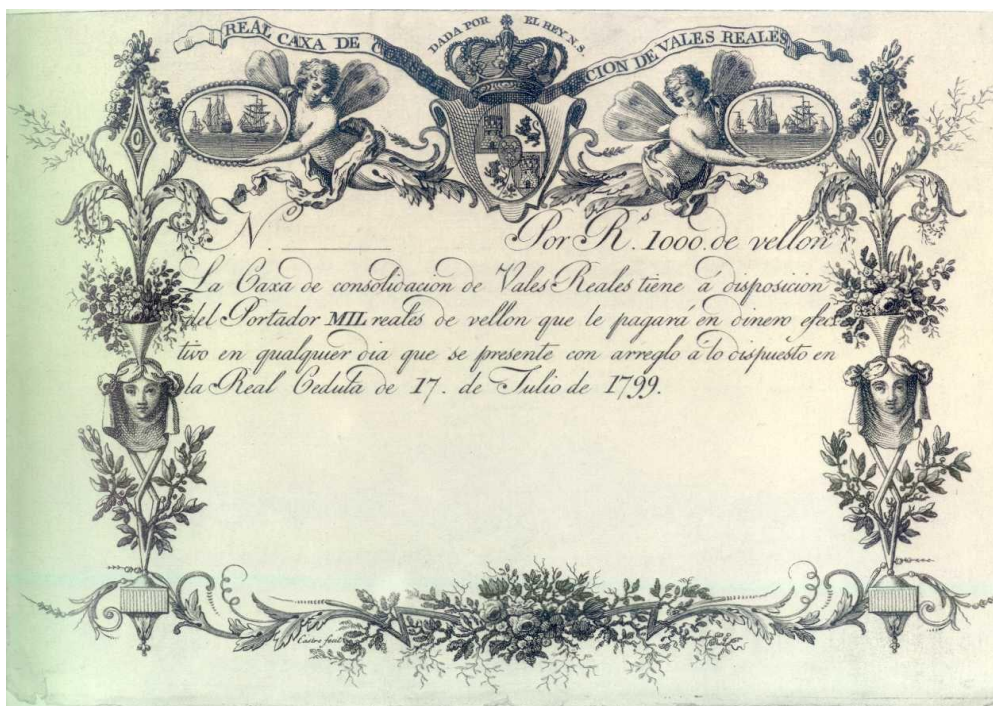 REAL CAXA DE
DADA POR EL REY N.S.
CION DE VALES REALES
N. Por R.s 1000. de vellon
La Caxa de consolidacion de Vales Reales tiene á disposicion
del Portador MIL reales de vellon que le pagará en dinero efec
tivo en qualquier dia que se presente con arreglo á lo dispuesto en
la Real Cedula de 17. de Julio de 1799.
Castro fecit